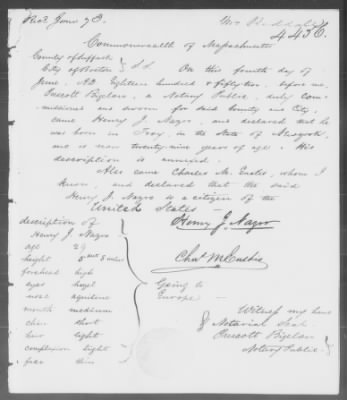 Recd June 7
4456
Commonwealth of Massachusetts
County of Suffolk
City of Boston } S.S. On this fourth day of
June, A.D. Eighteen hundred & fifty two, before me,
Prescott Bigelow, a Notary Public, duly Com-
missioned and sworn for said County and City,
came Henry J. Nazro, and declared that he
was born in Troy, in the State of Newyork,
and is now twenty nine years of age. His
description is annexed.
Also came Charles M. Eustis, whom I
know, and declared that the said
Henry J. Nazro is a citizen of the
United States
Henry J. Nazro
Chas M Eustis
description of
Henry J. Nazro
age 29
height 5 feet
forehead high
eyes hazel
nose aquiline
mouth medium
chin short
hair light
complexion light
face thin
Going to
Europe
Witness my hand
& Notarial Seal.
Prescott Bigelow
Notary Public